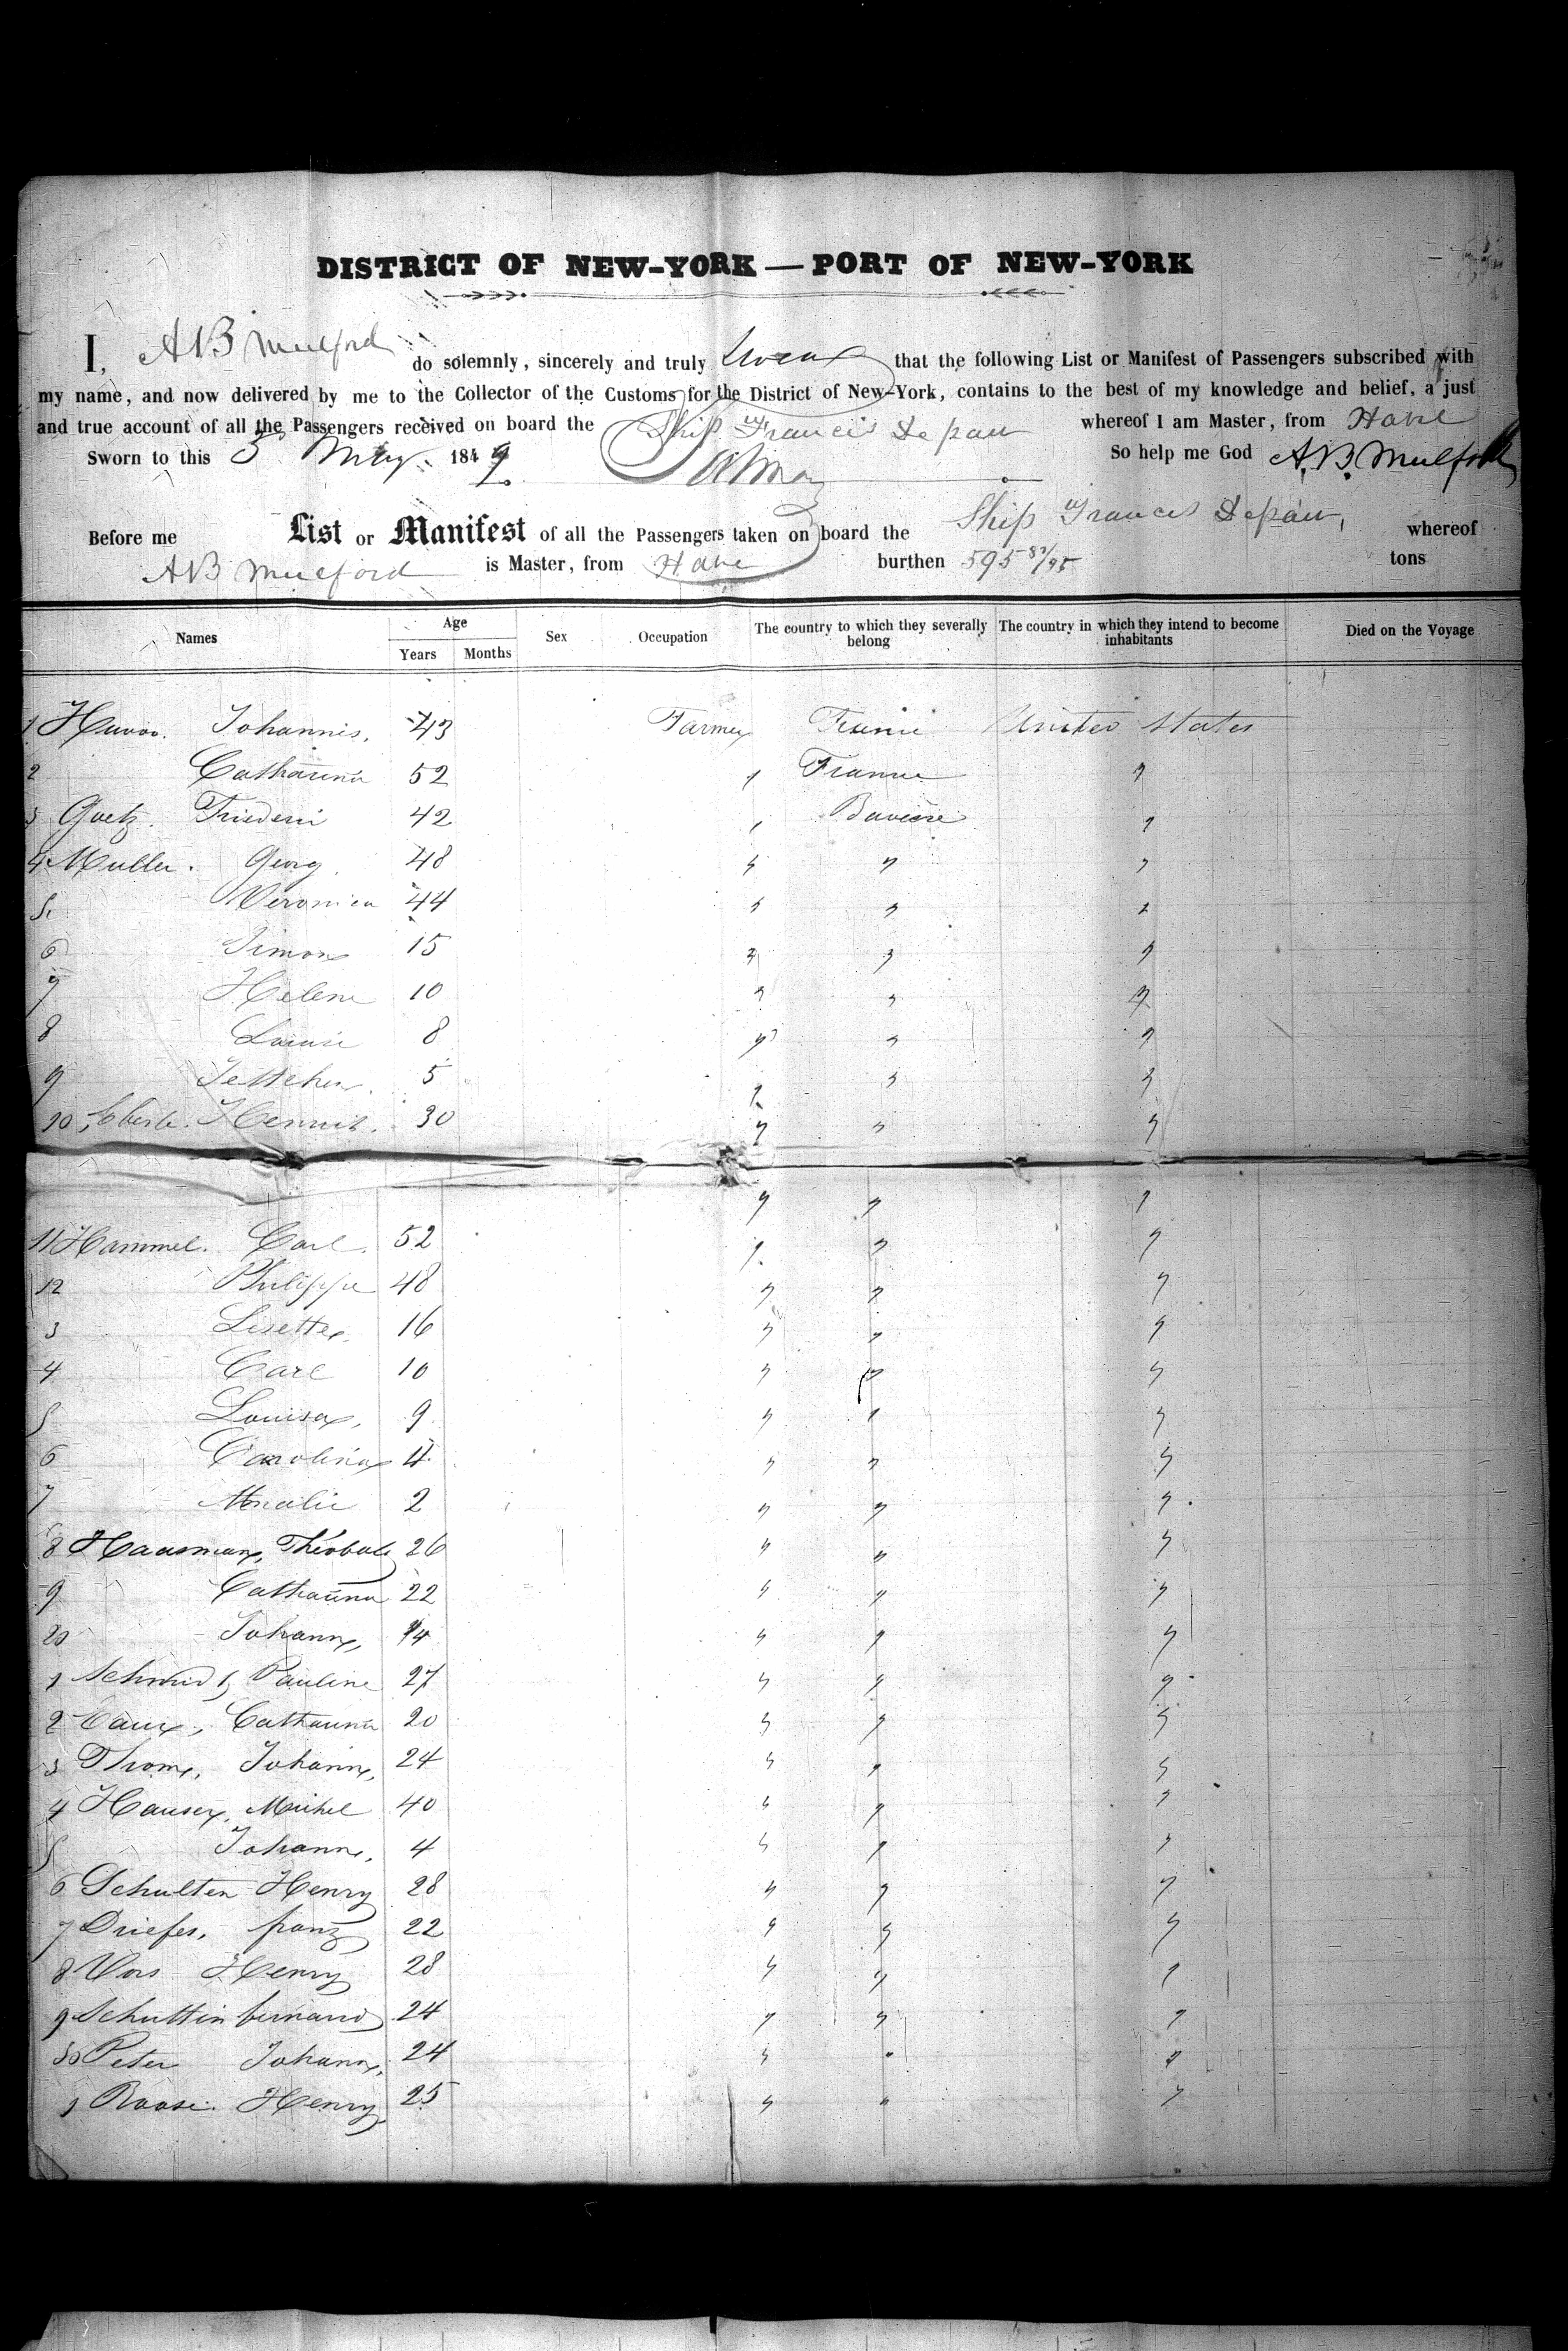 DISTRICT OF NEW-YORK — PORT OF NEW-YORK
I, A B Mulford do solemnly, sincerely and truly swear that the following List or Manifest of Passengers subscribed with
my name, and now delivered by me to the Collector of the Customs for the District of New-York, contains to the best of my knowledge and belief, a just
and true account of all the Passengers received on board the Ship Francis Depau whereof I am Master, from Havre
Sworn to this 5 May 1849 So help me God A.B. Mulford
Before me List or Manifest of all the Passengers taken on board the Ship Francis Depau, whereof
A B Mulford is Master, from Havre burthen 595 tons
Names Age Years Months Sex Occupation The country to which they severally belong The country in which they intend to become inhabitants Died on the Voyage
1 Johannis. 43 Farmer United States
2 Catharina 52 " France "
3 Goetz. 42 " Baviere "
4 Muller. Georg 48 " " "
5 Veronica 44 " " "
6 Simon 15 " " "
7 Helene 10 " " "
8 8 " " "
9 5 " " "
10 30 " " "
" " "
11 Hammel. Carl. 52 " " "
12 Philippe 48 " " "
3 Lisette 16 " " "
4 Carl 10 " " "
5 Louisa, 9 " " "
6 Carolina 4 " " "
7 Amalie 2 " " "
8 Hausman, Théobald 26 " " "
9 Catharina 22 " " "
20 Johann, 14 " " "
1 Schmidt, Pauline 27 " " "
2 Catharina 20 " " "
3 Thom, Johann, 24 " " "
4 Hauser, Michel 40 " " "
5 Johann, 4 " " "
6 Schulten Henry 28 " " "
7 Driefes, franz 22 " " "
8 Vors Henry 28 " " "
9 Schuttin bernard 24 " " "
30 Peter Johann, 24 " " "
1 Raase. Henry 25 " " "